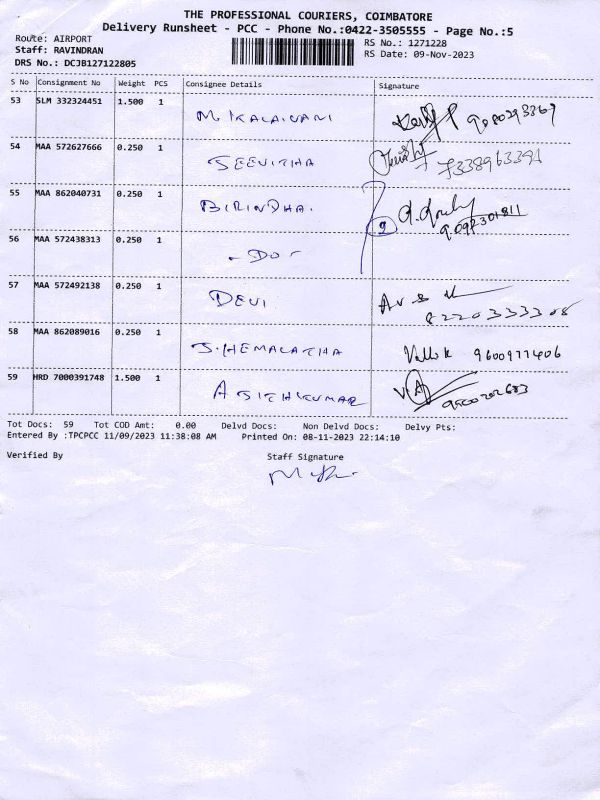 THE PROFESSIONAL COURIERS, COIMBATORE
Delivery Runsheet - PCC - Phone No.:0422-3505555 - Page No.:5
Route: AIRPORT RS No.: 1271228
Staff: RAVINDRAN RS Date: 09-Nov-2023
DRS No.: DCJB127122805
S No Consignment No Weight PCS Consignee Details Signature
53 SLM 332324451 1.500 1 M. KALAIVANI
54 MAA 572627666 0.250 1 SEEVITHA 7338963391
55 MAA 862040731 0.250 1 BIRINDHA. 2 9092301811
56 MAA 572438313 0.250 1 - DO -
57 MAA 572492138 0.250 1 DEVI 8220333308
58 MAA 862089016 0.250 1 S. HEMALATHA 9600977406
59 HRD 7000391748 1.500 1 AJITHKUMAR
Tot Docs: 59 Tot COD Amt: 0.00 Delvd Docs: Non Delvd Docs: Delvy Pts:
Entered By :TPCPCC 11/09/2023 11:38:08 AM Printed On: 08-11-2023 22:14:10
Verified By Staff Signature